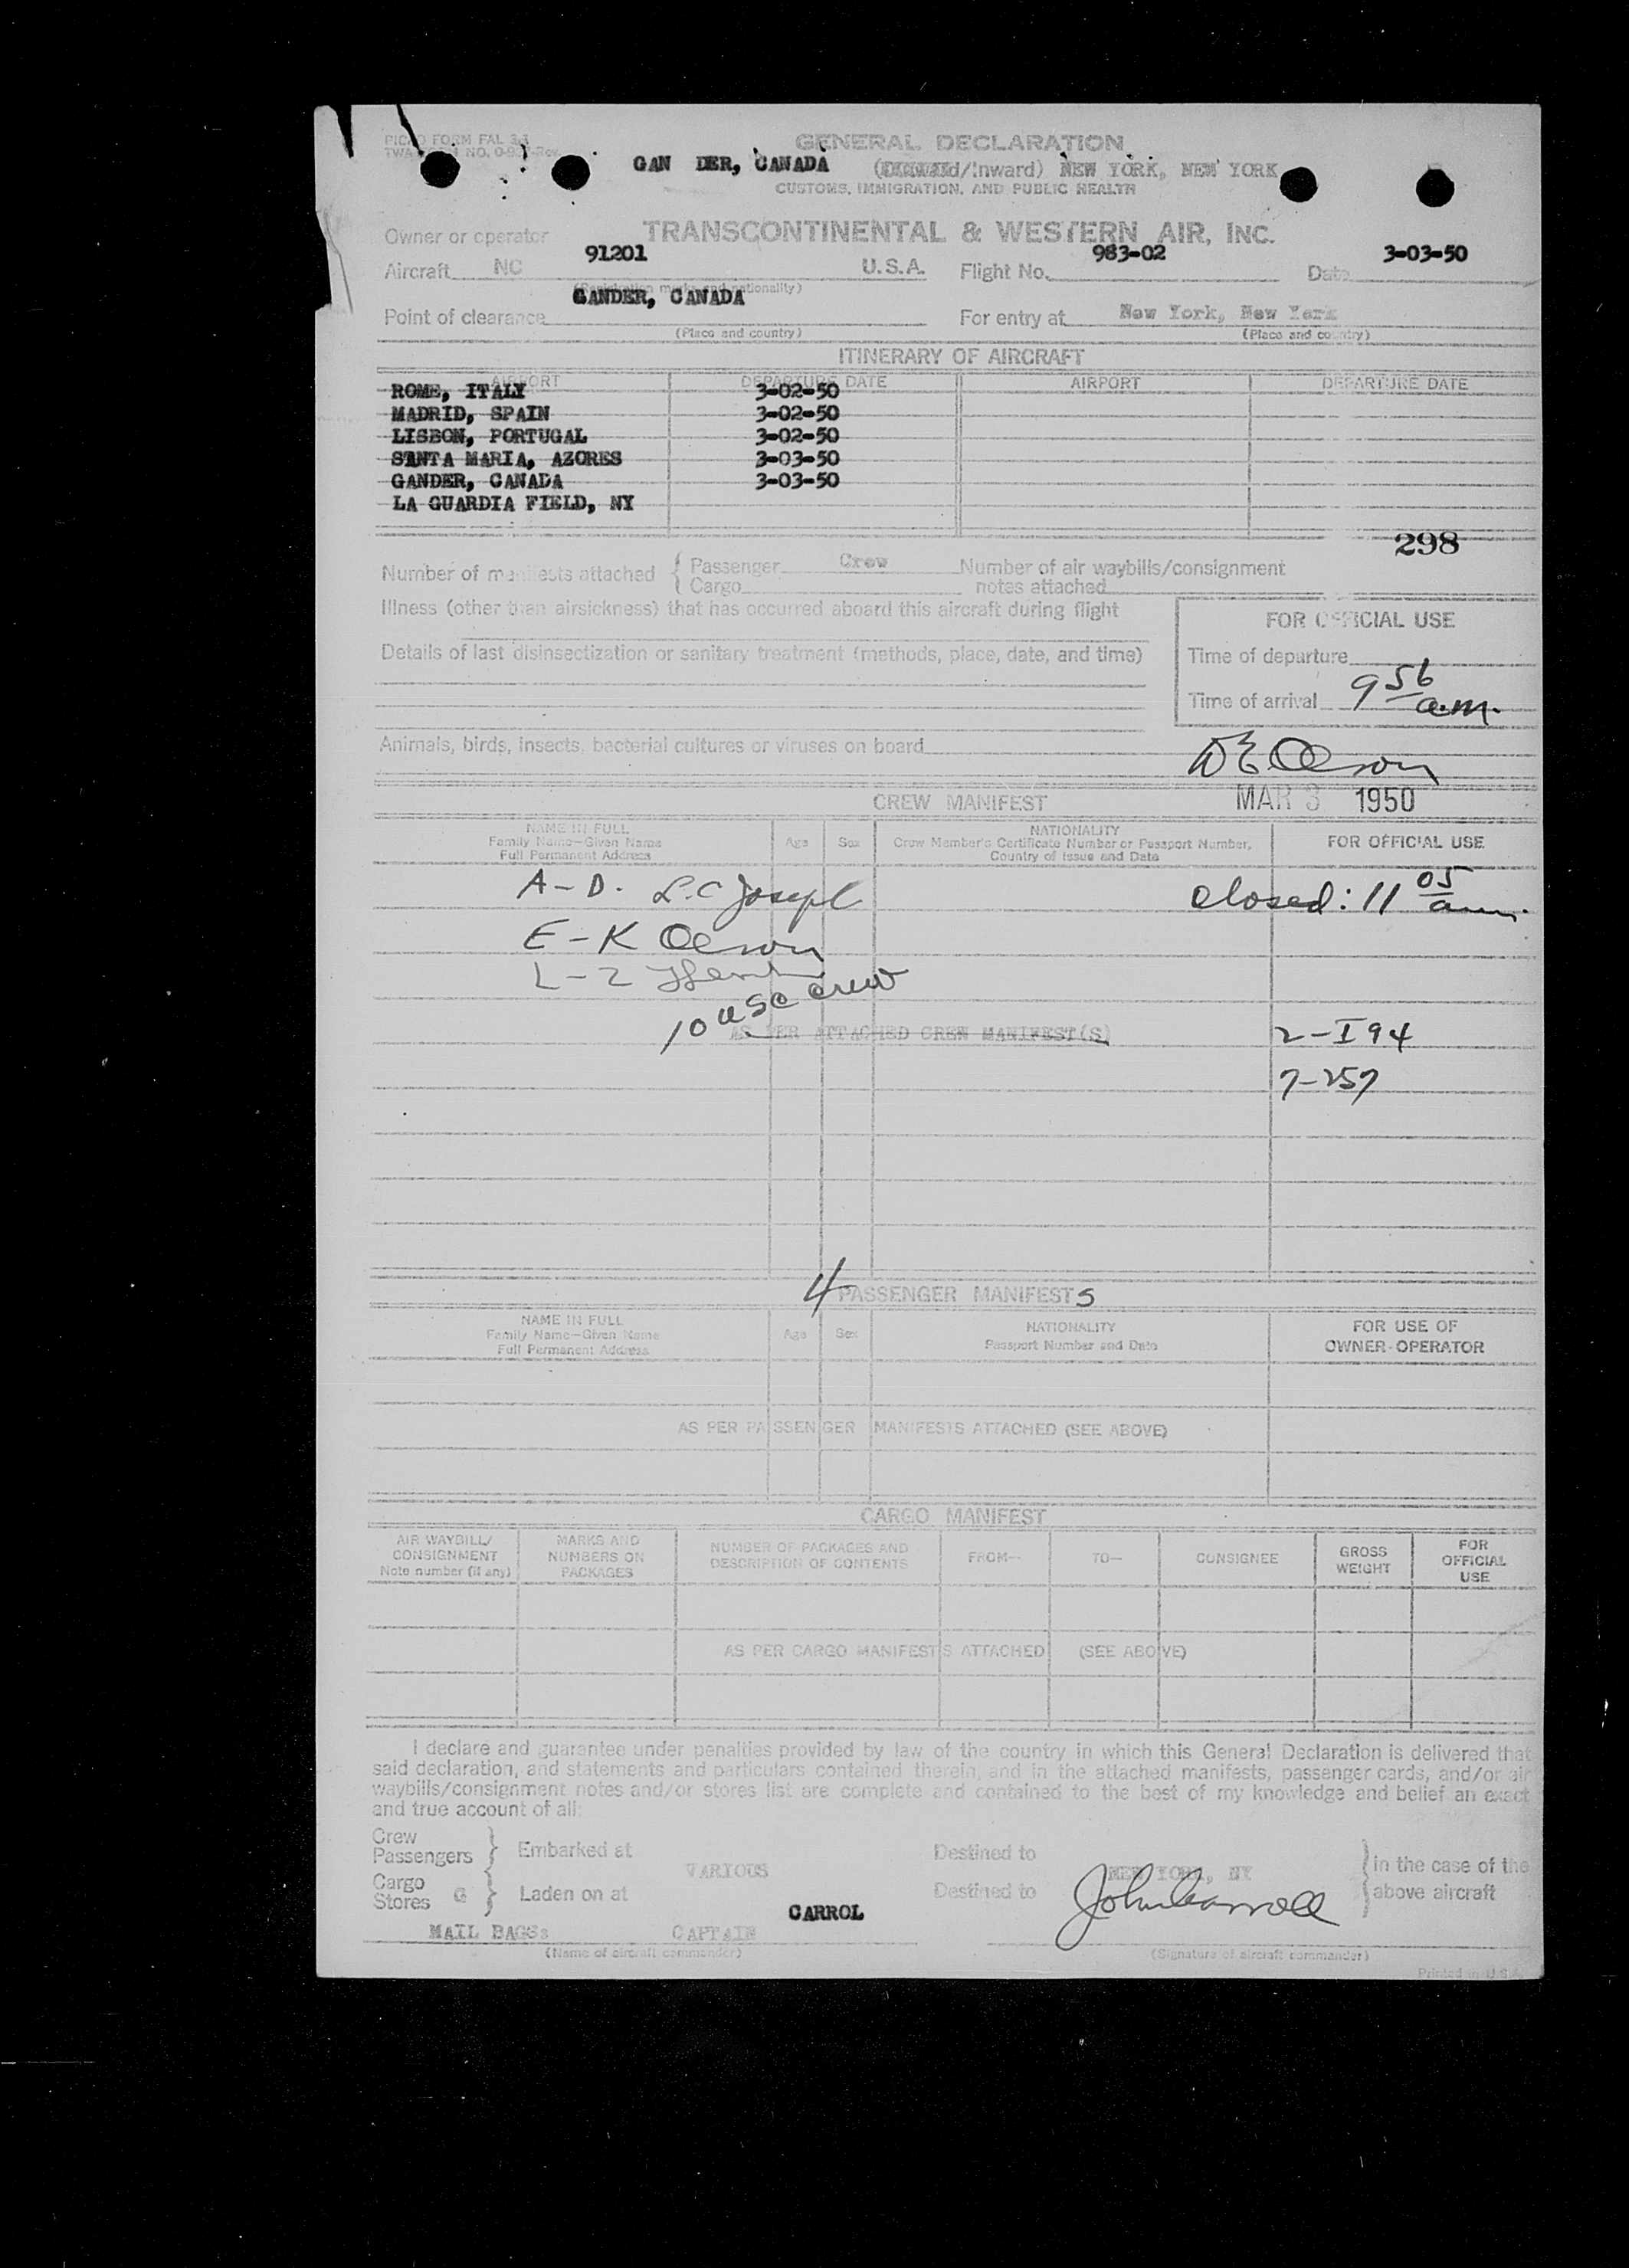 PICAO FORM FAL 3.1
TWA FORM NO. Rev.
GENERAL DECLARATION
GAN DER, CANADA (Outward/Inward) NEW YORK, NEW YORK
CUSTOMS, IMMIGRATION, AND PUBLIC HEALTH
Owner or operator TRANSCONTINENTAL & WESTERN AIR, INC.
Aircraft NC 91201 U.S.A. Flight No. 983-02 Date 3-03-50
(Registration marks and nationality)
Point of clearance GANDER, CANADA For entry at New York, New York
(Place and country) (Place and country)
ITINERARY OF AIRCRAFT
AIRPORT DEPARTURE DATE AIRPORT DEPARTURE DATE
ROME, ITALY 3-02-50
MADRID, SPAIN 3-02-50
LISBON, PORTUGAL 3-02-50
SANTA MARIA, AZORES 3-03-50
GANDER, CANADA 3-03-50
LA GUARDIA FIELD, NY
298
Number of manifests attached { Passenger Crew Number of air waybills/consignment
Cargo notes attached
Illness (other than airsickness) that has occurred aboard this aircraft during flight
FOR OFFICIAL USE
Details of last disinsectization or sanitary treatment (methods, place, date, and time)
Time of departure
Time of arrival 9 56 a.m.
Animals, birds, insects, bacterial cultures or viruses on board
D E Olson
CREW MANIFEST
MAR 3 1950
NAME IN FULL
Family Name—Given Name
Full Permanent Address
Age Sex
NATIONALITY
Crew Member's Certificate Number or Passport Number,
Country of Issue and Date
FOR OFFICIAL USE
A-D. L.C Joseph
Closed: 11 05 a.m.
E-K Olson
L-Z
10 USC crew
AS PER ATTACHED CREW MANIFEST(S)
2-I94
7-257
4 PASSENGER MANIFESTS
NAME IN FULL
Family Name—Given Name
Full Permanent Address
Age Sex
NATIONALITY
Passport Number and Date
FOR USE OF
OWNER-OPERATOR
AS PER PASSENGER MANIFESTS ATTACHED (SEE ABOVE)
CARGO MANIFEST
AIR WAYBILL/
CONSIGNMENT
Note number (if any)
MARKS AND
NUMBERS ON
PACKAGES
NUMBER OF PACKAGES AND
DESCRIPTION OF CONTENTS
FROM— TO— CONSIGNEE
GROSS
WEIGHT
FOR
OFFICIAL
USE
AS PER CARGO MANIFESTS ATTACHED (SEE ABOVE)
I declare and guarantee under penalties provided by law of the country in which this General Declaration is delivered that
said declaration, and statements and particulars contained therein, and in the attached manifests, passenger cards, and/or air
waybills/consignment notes and/or stores list are complete and contained to the best of my knowledge and belief an exact
and true account of all:
Crew
Passengers } Embarked at VARIOUS Destined to NEW YORK, NY } in the case of the
Cargo
Stores G } Laden on at Destined to above aircraft
CARROL John Carroll
MAIL BAGS: CAPTAIN
(Name of aircraft commander) (Signature of aircraft commander)
Printed in U.S.A.